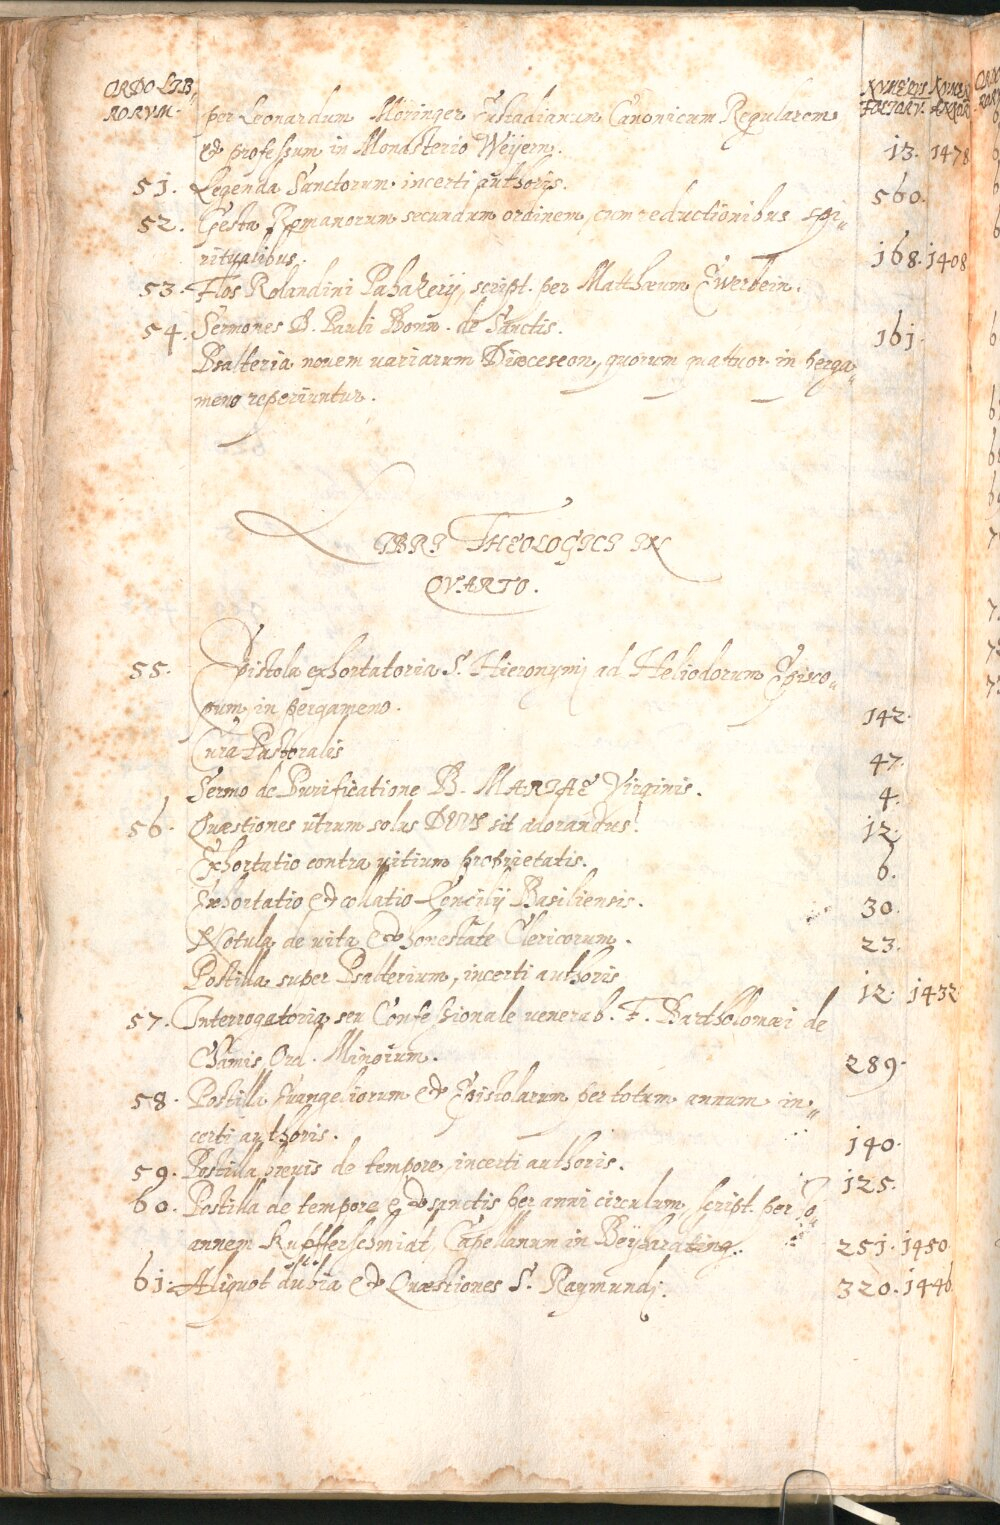 ORDO LIB„
RORVM.
NVMERVS
FOLIORV.
per Leonardum Möringer Eustadianum Canonicum Regularem
et professum in Monasterio Weÿern. 13. 1478
51. Legenda Sanctorum incerti authoris. 560.
52. Gesta Romanorum secundum ordinem, cum reductionibus spi„
ritualibus. 168. 1408
53. Flos Rolandini script. per Matthæum
54. Sermones B. Pauli Bonū. de Sanctis. 161.
Psalteria novem uariarum Diœceseon, quorum quattuor in perga„
meno reperiuntur.
LIBRI THEOLOGICI IN
QVARTO.
55. Epistola exhortatoria S. Hieronymj ad Heliodorum Episco„
pum, in pergameno. 142.
Cura Pastoralis 47.
Sermo de Purificatione B. MARIAE Virginis. 4.
56. Quæstiones utrum solus DEUS sit adorandus. 12.
Exhortatio contra uitium proprietatis. 6.
Exhortatio et collatio Concilij Basiliensis. 30.
Notula de uita et honestate Clericorum. 23.
Postilla super Psalterium, incerti authoris 12. 1432
57. Interrogatoria seu Confessionale uenerab. F. Bartholomæi de
Chamis Ord. Minorum. 289.
58. Postilla Euangeliorum et Epistolarum per totum annum in„
certi authoris. 140.
59. Postilla breuis de tempore, incerti authoris. 125.
60. Postilla de tempore et de sanctis per anni circulum, script. per Jo„
annem Kupfferschmidt, Capellanum in Beÿharting. 251. 1450
61. Aliquot dubia et Quæstiones S. Raymundj. 320. 1446